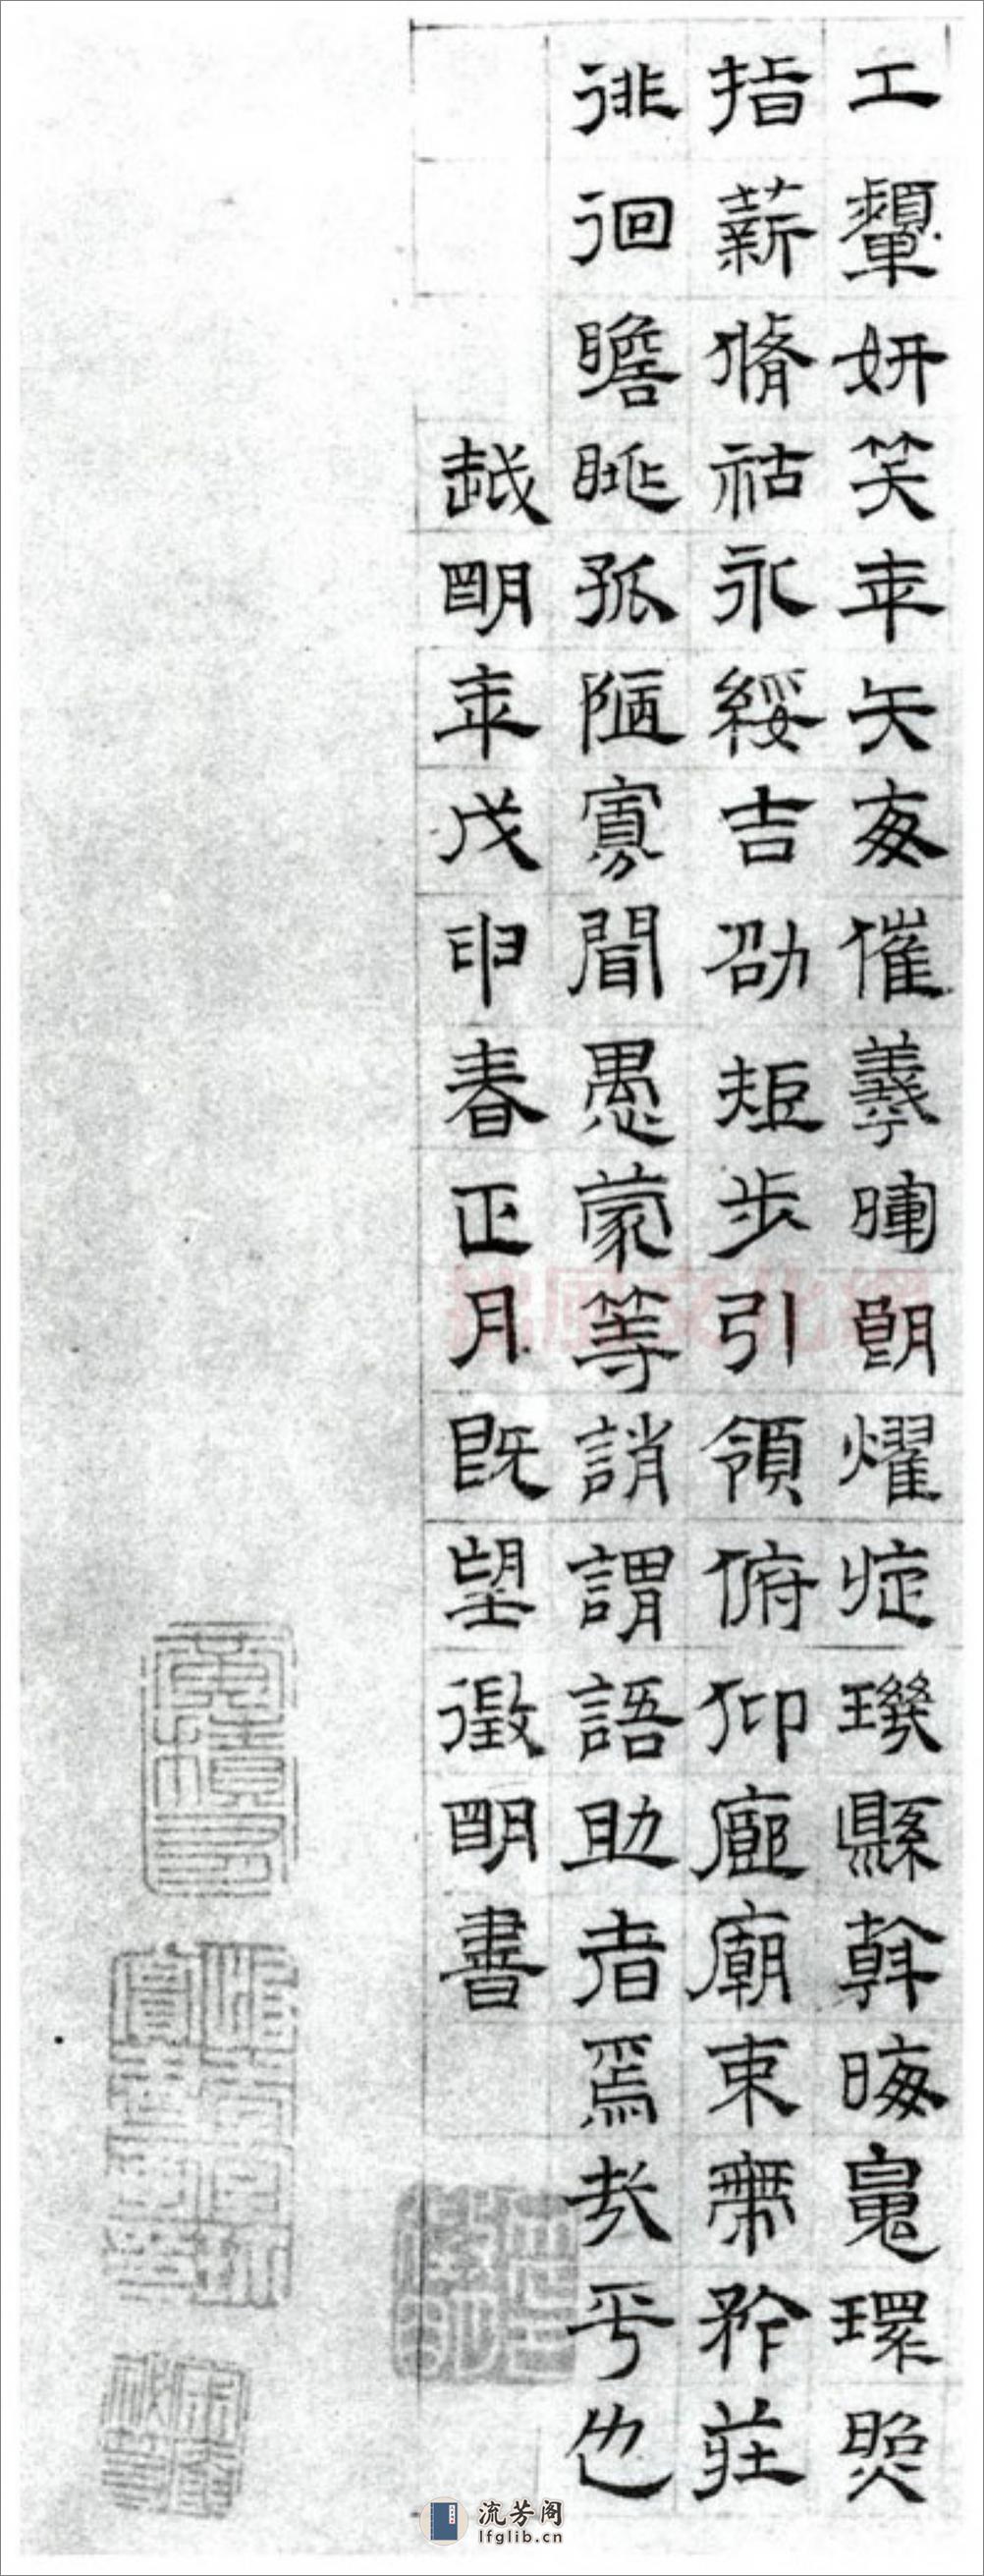 工顰妍笑年矢每催羲暉朗耀旋璣縣斡晦魄環照
指薪脩祜永綏吉劭矩步引領俯仰廊廟束帶矜莊
徘徊瞻眺孤陋寡聞愚蒙等誚謂語助者焉哉乎也
越明年戊申春正月既望徵明書
流芳阁
lfglib.cn